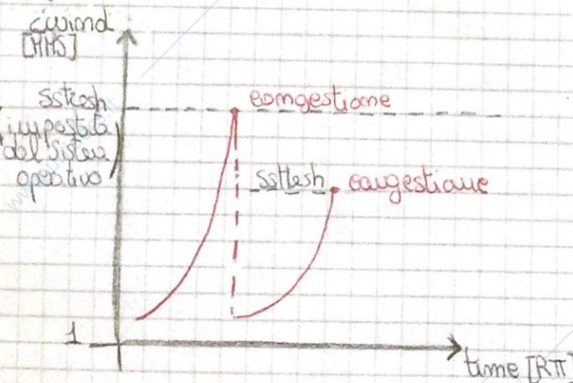 cwimd
[MMS]
sstresh
(impostata
dal sistema
operativo)
comgestione
sstresh
congestione
1
time [RTT]